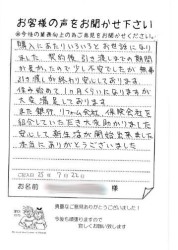 お客様の声をお聞かせ下さい
購入にあたりいろいろとお世話になり
ました。契約後、引き渡しまでの期間
が長かったので少し不安でしたが無事
引き渡しが終わり安心しております。
住み始めて1ヶ月くらいになりますが
大変満足しております。
また銀行、リフォーム会社、保険会社を
紹介していただき大変助かりました
安心して新生活が開始出来ました
本当にありがとうございました
25年 7月21日
お名前 様
貴重なご意見ありがとうございました!
今後も頑張りますので
宜しくお願い致します